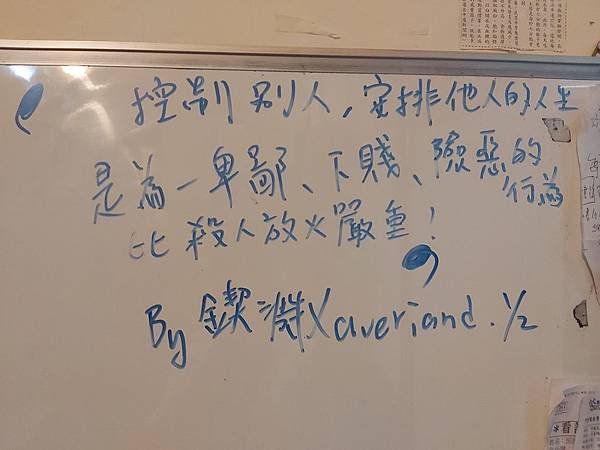 控制別人，安排他人的人生
是為一卑鄙、下賤、險惡的行為
比殺人放火嚴重！
By 鍥淵 Xaveriand. 1/2